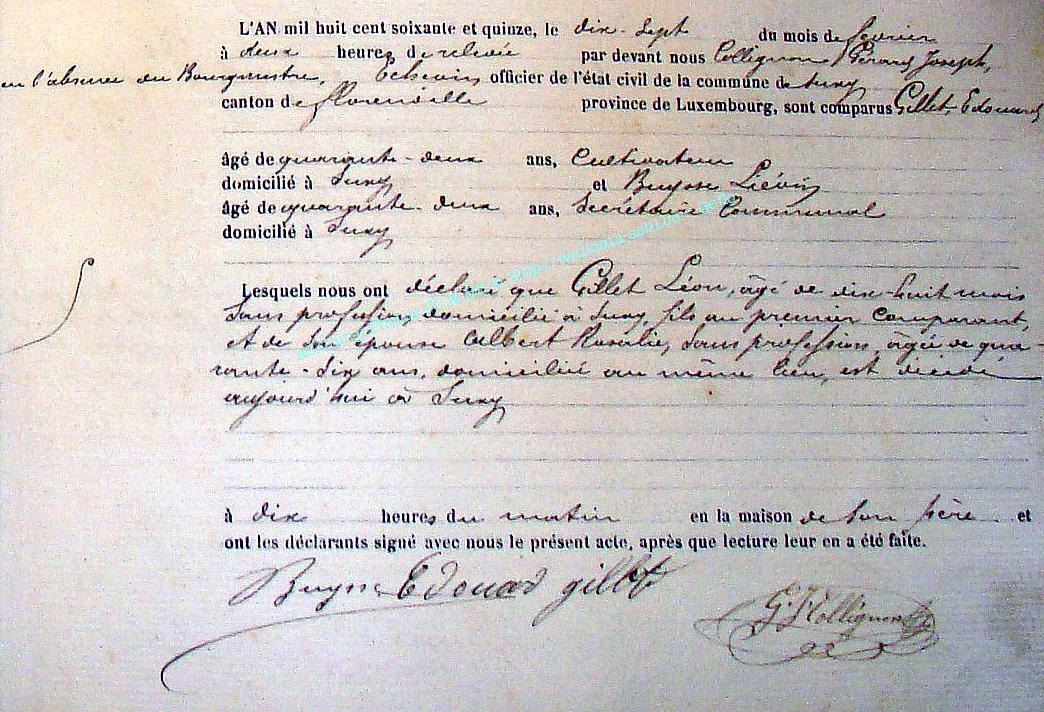 L'AN mil huit cent soixante et quinze, le dix-sept du mois de février
à deux heures de relevée par devant nous Collignon Gérard Joseph,
en l'absence du Bourgmestre, Echevin officier de l'état civil de la commune de Suxy
canton de florenville province de Luxembourg, sont comparus Gillet, Edouard
âgé de quarante-deux ans, Cultivateur
domicilié à Suxy et Buysse Liévin
âgé de quarante-deux ans, Secrétaire Communal
domicilié à Suxy
Lesquels nous ont déclaré que Gillet Léon, âgé de dix-huit mois
sans profession, domicilié à Suxy, fils du premier Comparant,
et de son épouse Albert Rosalie, sans profession, âgée de qua-
rante-six ans, domiciliée au même lieu, est décédé
aujourd'hui à Suxy
à dix heures du matin en la maison de son père et
ont les déclarants signé avec nous le présent acte, après que lecture leur en a été faite.
Buysse Edouard gillet
G. J. Collignon